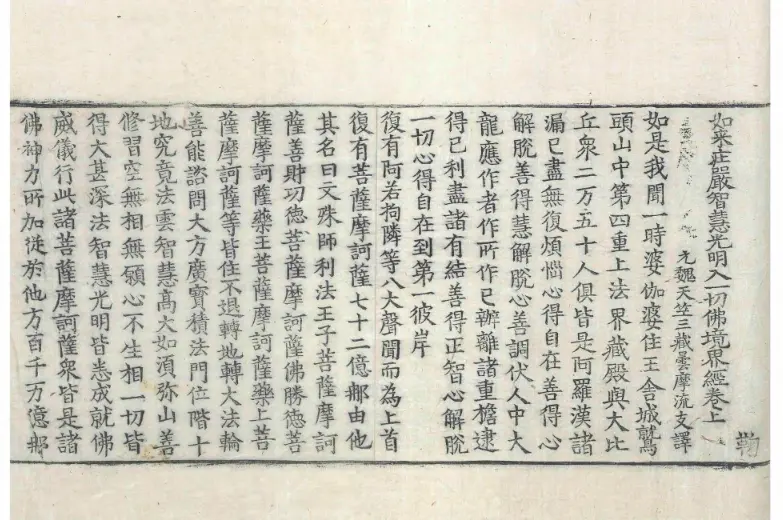 如来庄嚴智慧光明入一切佛境界經卷上
鞠
元魏天竺三藏曇摩流支譯
如是我聞一時婆伽婆住王舍城鷲
頭山中第四重上法界藏殿與大比
丘衆二万五十人俱皆是阿羅漢諸
漏已盡無復煩惱心得自在善得心
解脫善得慧解脫心善調伏人中大
龍應作者作所作已辦離諸重擔逮
得已利盡諸有結善得正智心解脫
一切心得自在到第一彼岸
復有阿若拘隣等八大聲聞而為上首
復有菩薩摩訶薩七十二億那由他
其名曰文殊師利法王子菩薩摩訶
薩善財功德菩薩摩訶薩佛勝德菩
薩摩訶薩藥王菩薩摩訶薩藥上菩
薩摩訶薩等皆住不退轉地轉大法輪
善能諮問大方廣寶積法門位階十
地究竟法雲智慧高大如湏弥山善
修習空無相無願心不生相一切皆
得大甚深法智慧光明皆悉成就佛
威儀行此諸菩薩摩訶薩衆皆是諸
佛神力所加從於他方百千万億那